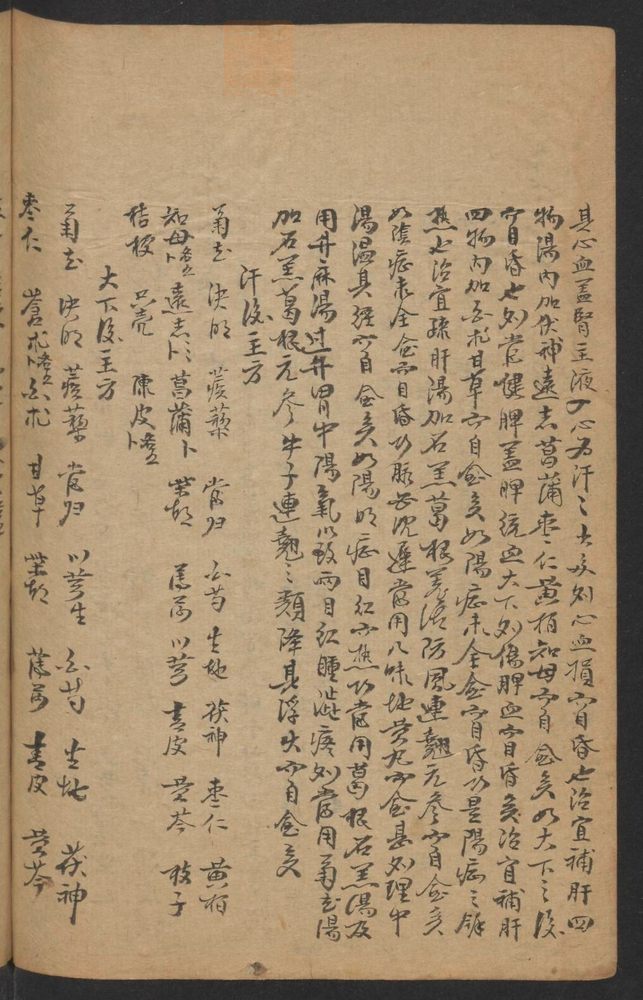 其心血蓋腎主液入心为汗汗太多則心血損而目昏也治宜補肝四
物湯內加伏神遠志菖蒲枣仁黃栢知母而自愈矣如大下之後
而目昏也則當健脾蓋脾統血大下則傷脾血而目昏矣治宜補肝
四物內加白朮甘草而自愈矣如陽症未全愈而目昏乃是陽症之餘
熱也治宜疎肝湯加石羔葛根羗活防風連翹元参而自愈矣
如陰症未全愈而目昏乃脈必沉遲當用八味地黃丸不愈甚則理中
湯溫其經而自愈矣如陽明症目紅而熱乃當用葛根石羔湯及
用升麻湯过升胃中陽氣以致両目紅腫澁疼則當用菊花湯
加石羔葛根元参牛子連翹之類降其浮火而自愈矣
汗後主方
菊花 決明 蒺藜 當归 白芍 生地 茯神 枣仁 黃栢
知母 遠志 菖蒲 柴胡 川芎 青皮 黃芩 枝子
桔梗 只壳 陳皮
大下後主方
菊花 決明 蒺藜 當归 川芎 白芍 生地 茯神
枣仁 蒼朮 白朮 甘草 柴胡 青皮 黃芩